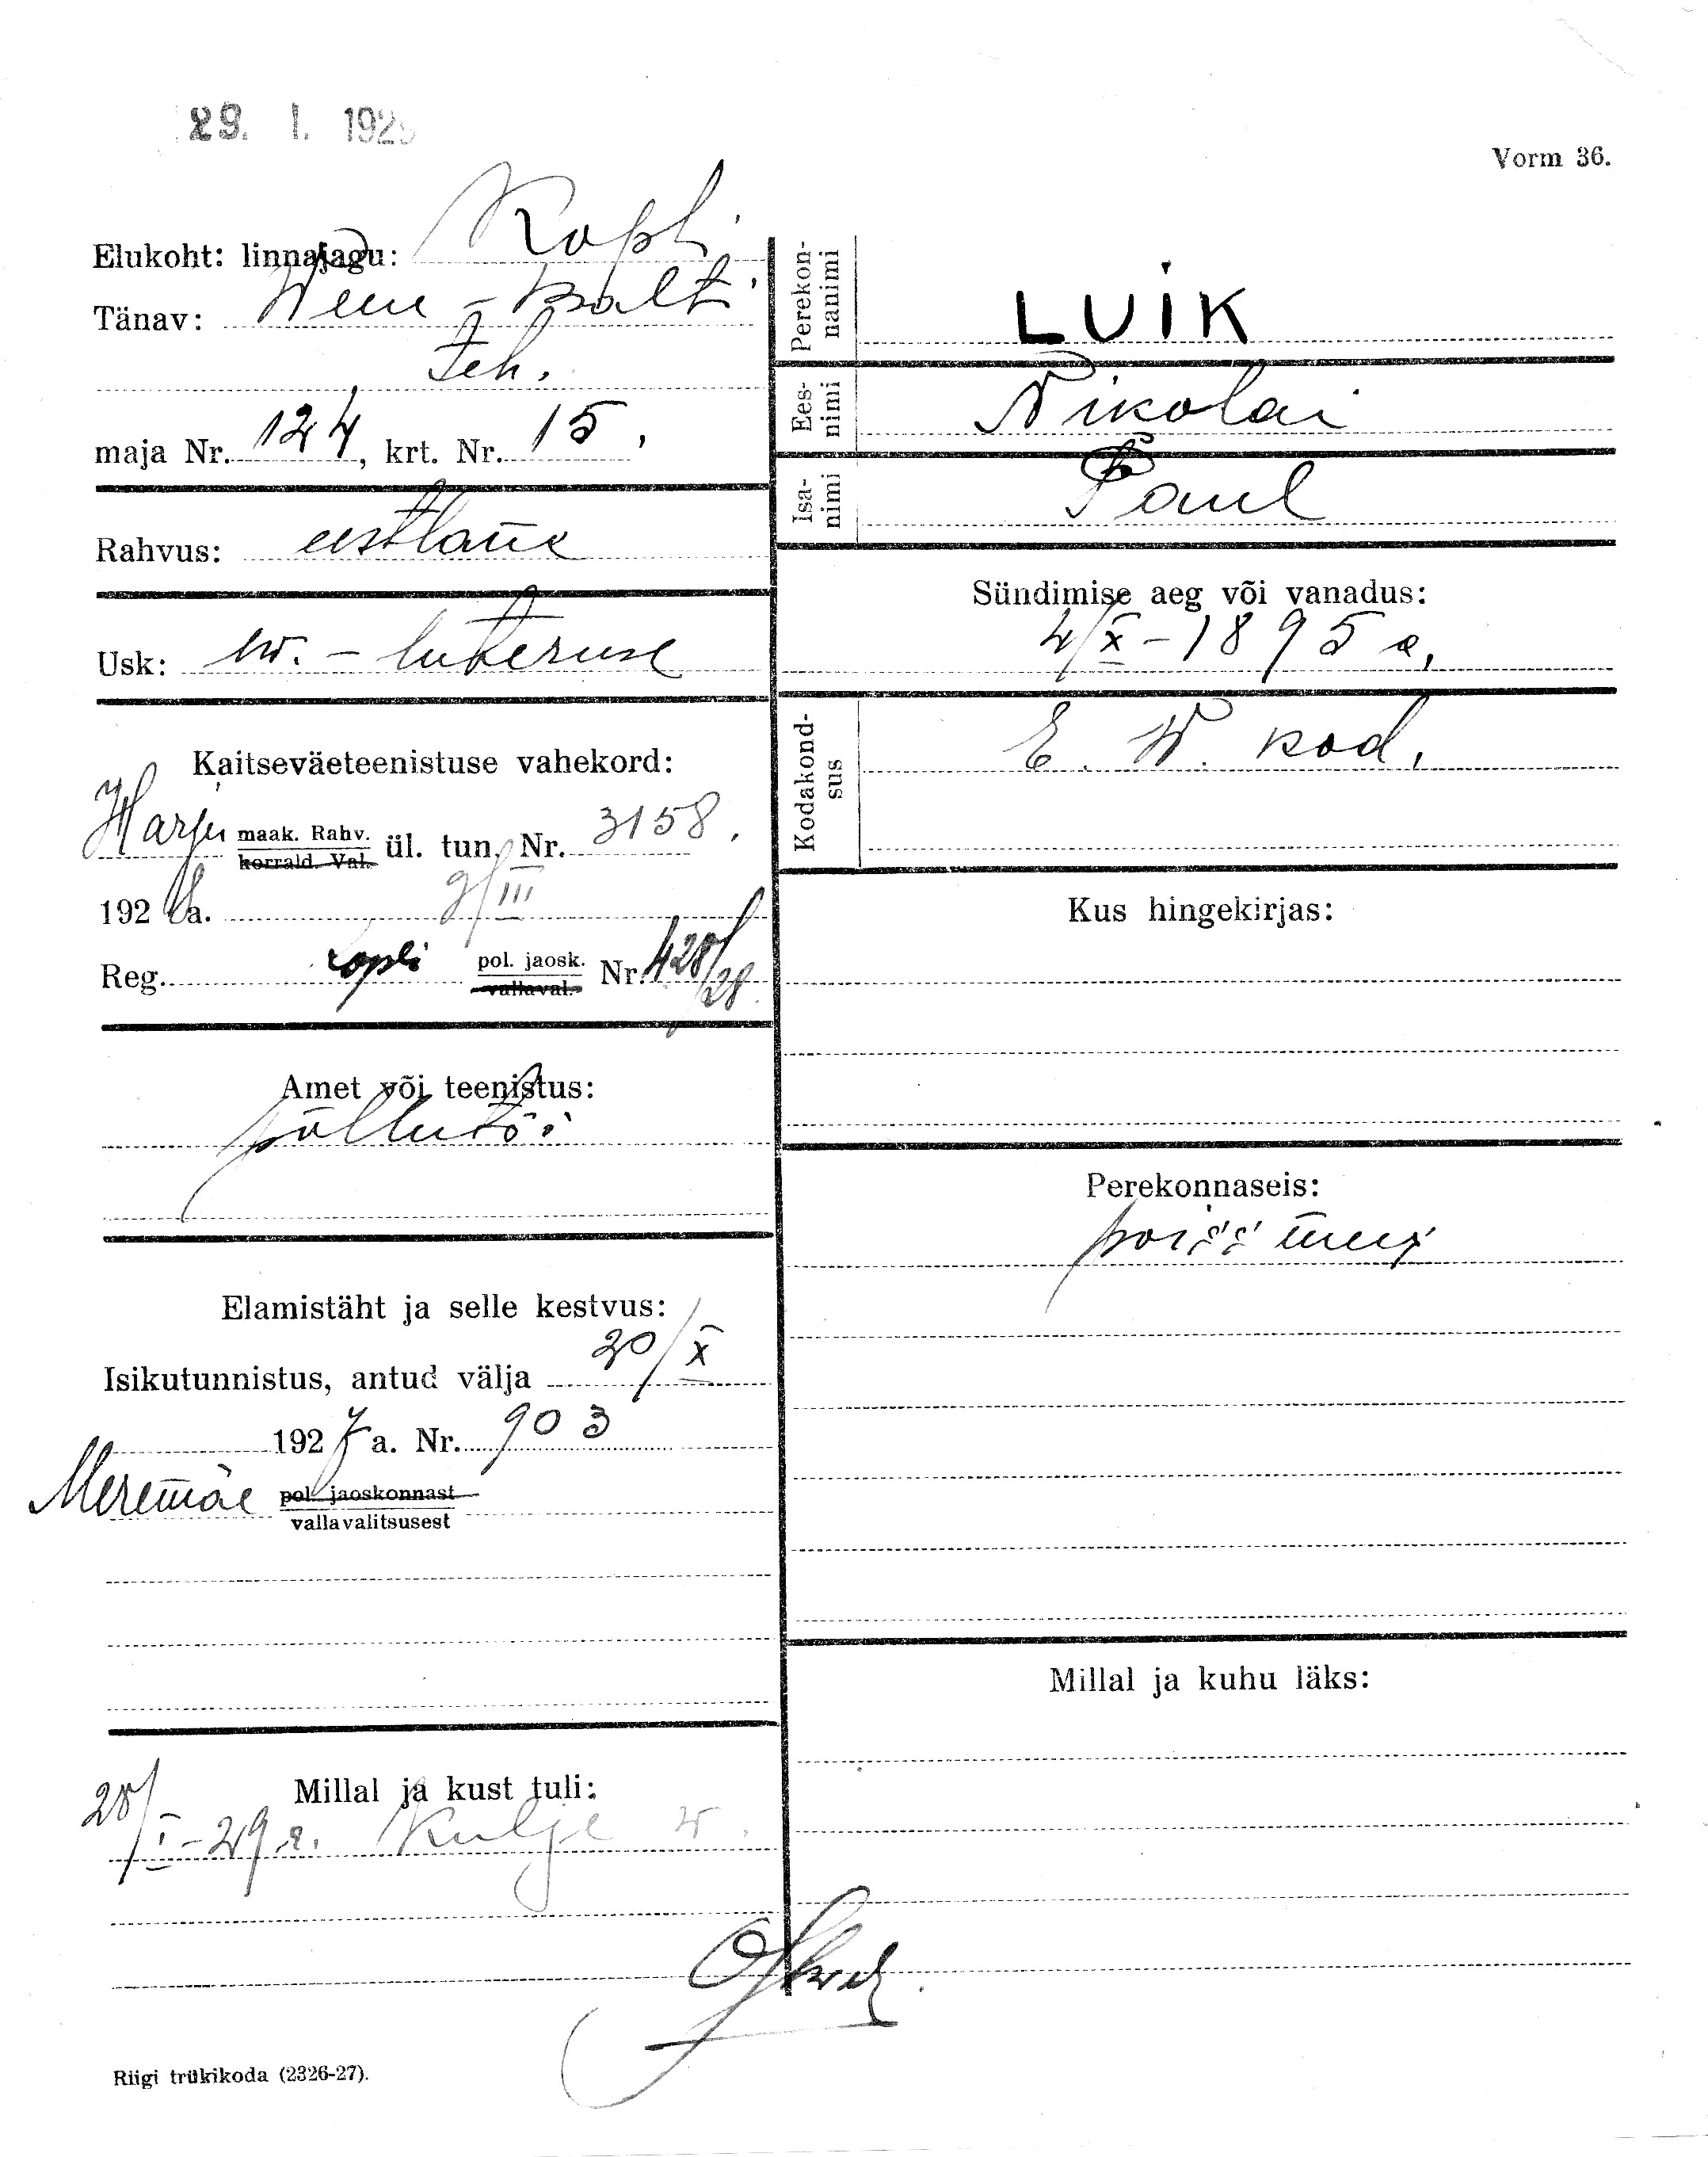 29. I. 192
Vorm 36.
Elukoht: linnajagu: Kopli
Tänav: Wene-Balti
teh.
maja Nr. 124, krt. Nr. 15,
Rahvus: eestlane
Usk: ew.-luteruse
Kaitseväeteenistuse vahekord:
Harju maak. Rahv. korrald. Val. ül. tun. Nr. 3158.
1928 a. 9/III
Reg. Kopli pol. jaosk. vallaval. Nr. 428/28.
Amet või teenistus:
põllutöö
Elamistäht ja selle kestvus:
Isikutunnistus, antud välja 20/X
1927 a. Nr. 903
Meremäe pol. jaoskonnast
vallavalitsusest
Millal ja kust tuli:
28/I-29 a. Kulje w.
Perekonnanimi LUIK
Eesnimi Nikolai
Isanimi Paul
Sündimise aeg või vanadus:
4/X-1895 a.
Kodakondsus E. W. kod.
Kus hingekirjas:
Perekonnaseis:
poissmees
Millal ja kuhu läks:
Riigi trükikoda (2326-27).